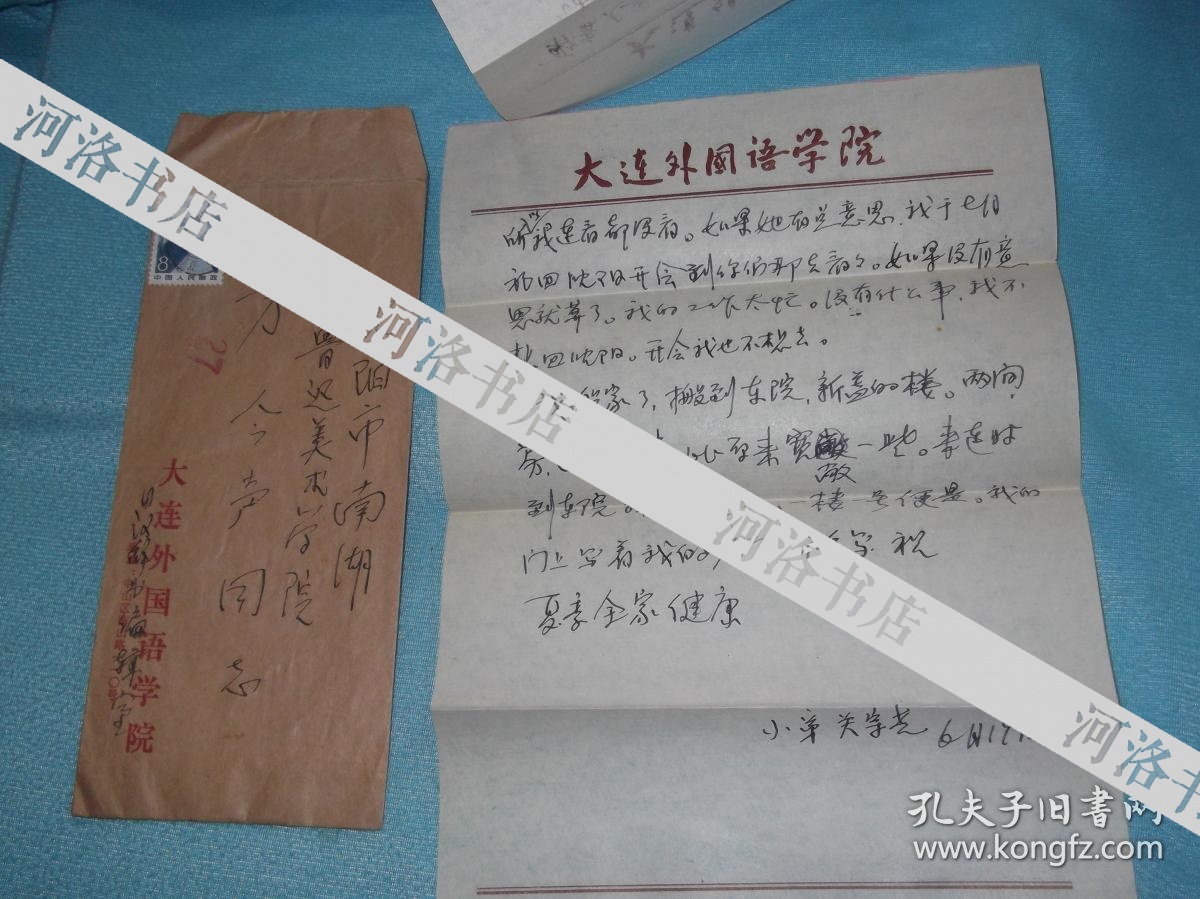 大连外國语学院
我连看都没看。如果她有些意思,我于七月
初回沈阳开会到你们那去看看。如果没有意
思就算了。我的工作太忙。没有什么事,我不
想回沈阳。开会我也不想去。
家了,搬到东院,新盖的楼。两间
原来宽敞一些。来连时
到东院
一楼一号便是。我的
门上写着我的
祝
夏季全家健康
小弟关宗光 6月19
8
中国人民邮政
27
沈阳市南湖
鲁迅美术学院
方今声同志
大连外国语学院
编辑室
河洛书店
河洛书店
河洛书店
河洛书店
河洛书店
河洛书店
孔夫子旧书网
www.kongfz.com